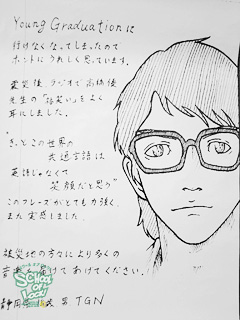 Young Graduationに
行けなくなってしまったので
ホントにうれしく思っています。
震災後 ラジオで高橋優
先生の「福笑い」をよく
耳にしました。
"きっとこの世界の
共通言語は
英語じゃなくて
笑顔だと思う"
このフレーズがとても力強く、
また実感しました。
被災地の方々により多くの
音楽を届けてあげてください。
静岡県 TGN
SCHOOL OF LOCK!